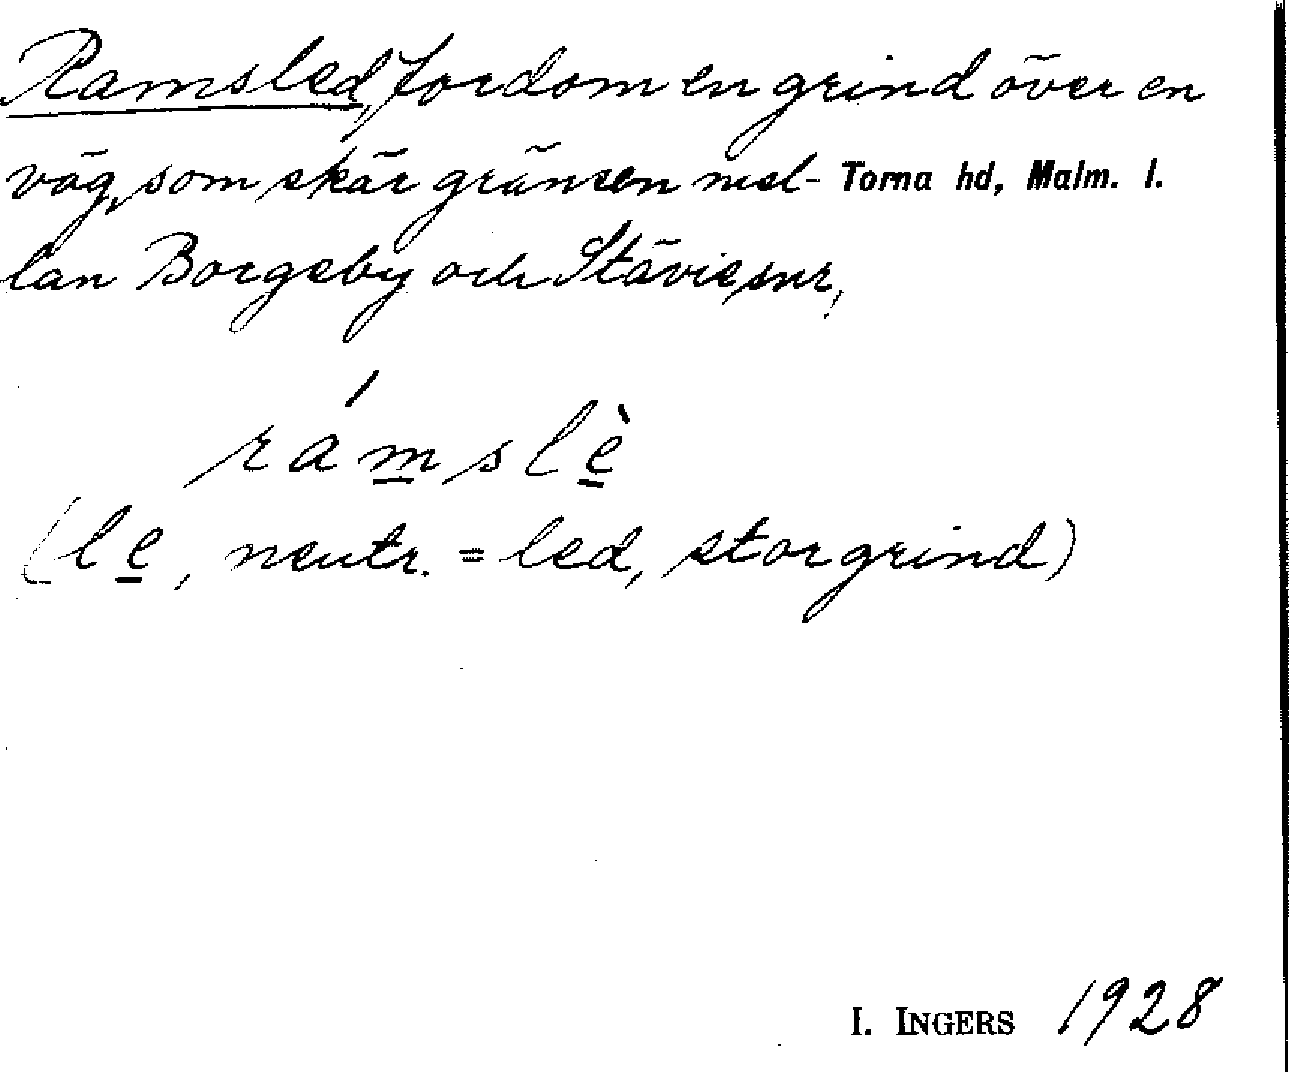 Ramsled, fordom en grind över en
väg, som skär gränsen mel- Torna hd, Malm. l.
lan Borgeby och Stävie snr,
rámslè
(le, neutr. = led, storgrind)
I. INGERS 1928